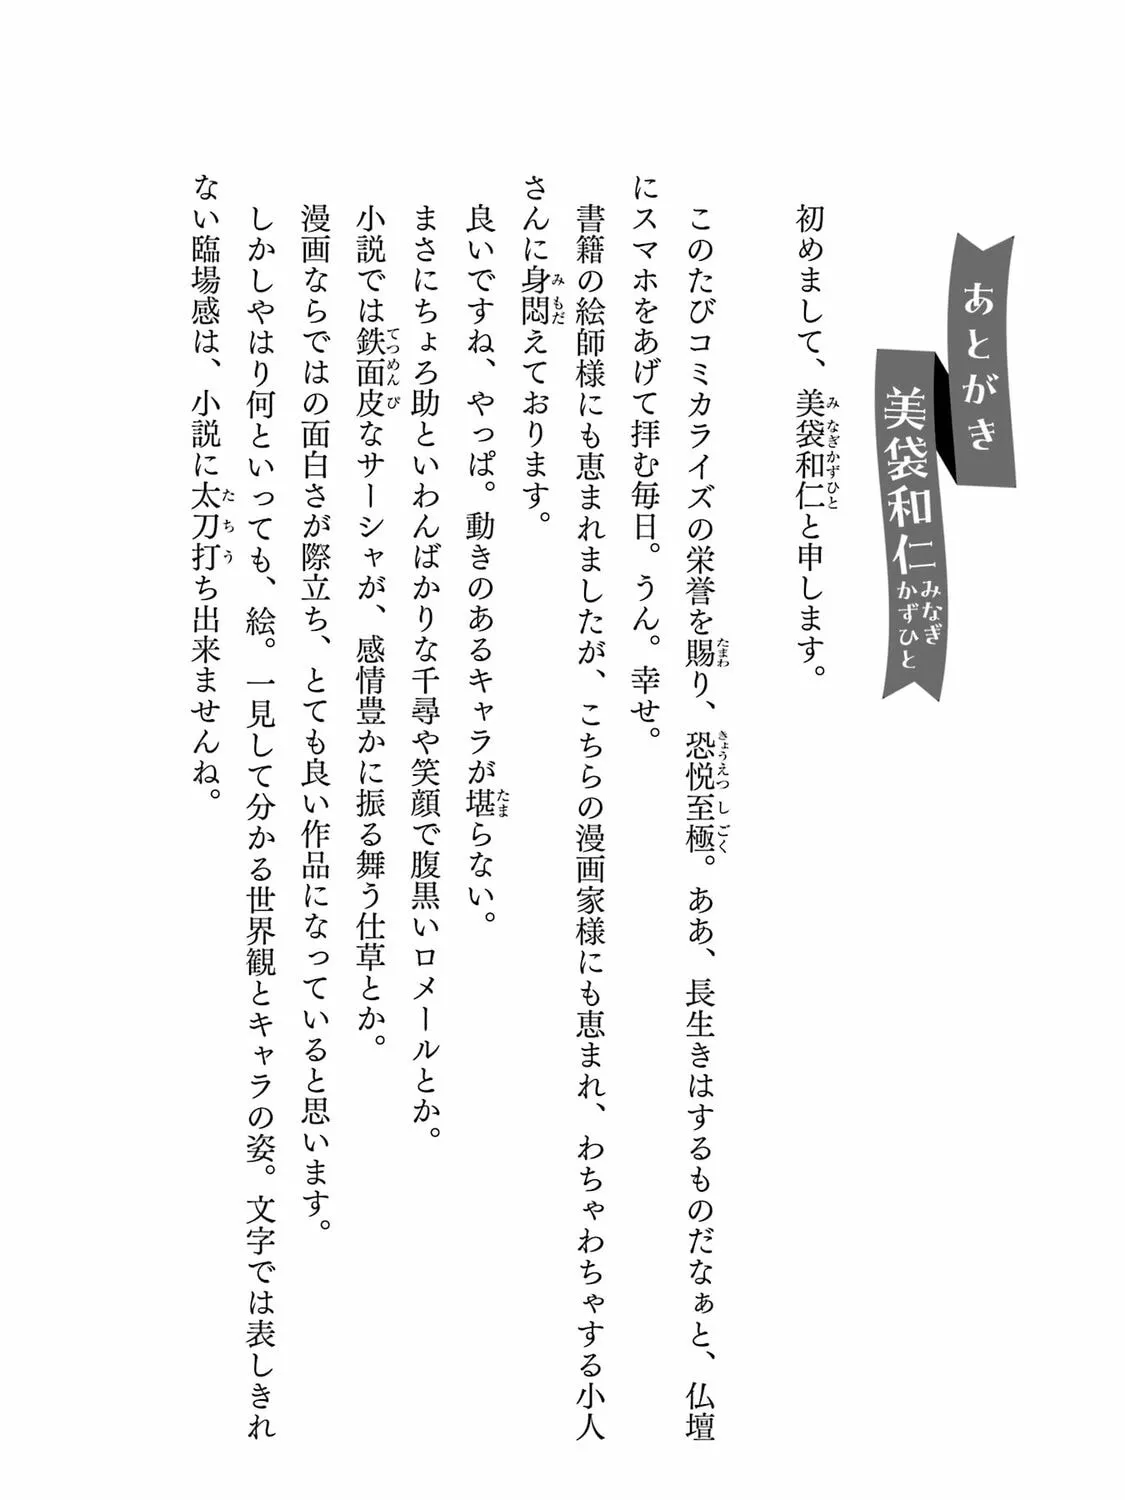 あとがき
美袋和仁
みなぎ
かずひと
初めまして、美袋和仁と申します。
このたびコミカライズの栄誉を賜り、恐悦至極。ああ、長生きはするものだなぁと、仏壇
にスマホをあげて拝む毎日。うん。幸せ。
書籍の絵師様にも恵まれましたが、こちらの漫画家様にも恵まれ、わちゃわちゃする小人
さんに身悶えております。
良いですね、やっぱ。動きのあるキャラが堪らない。
まさにちょろ助といわんばかりな千尋や笑顔で腹黒いロメールとか。
小説では鉄面皮なサーシャが、感情豊かに振る舞う仕草とか。
漫画ならではの面白さが際立ち、とても良い作品になっていると思います。
しかしやはり何といっても、絵。一見して分かる世界観とキャラの姿。文字では表しきれ
ない臨場感は、小説に太刀打ち出来ませんね。